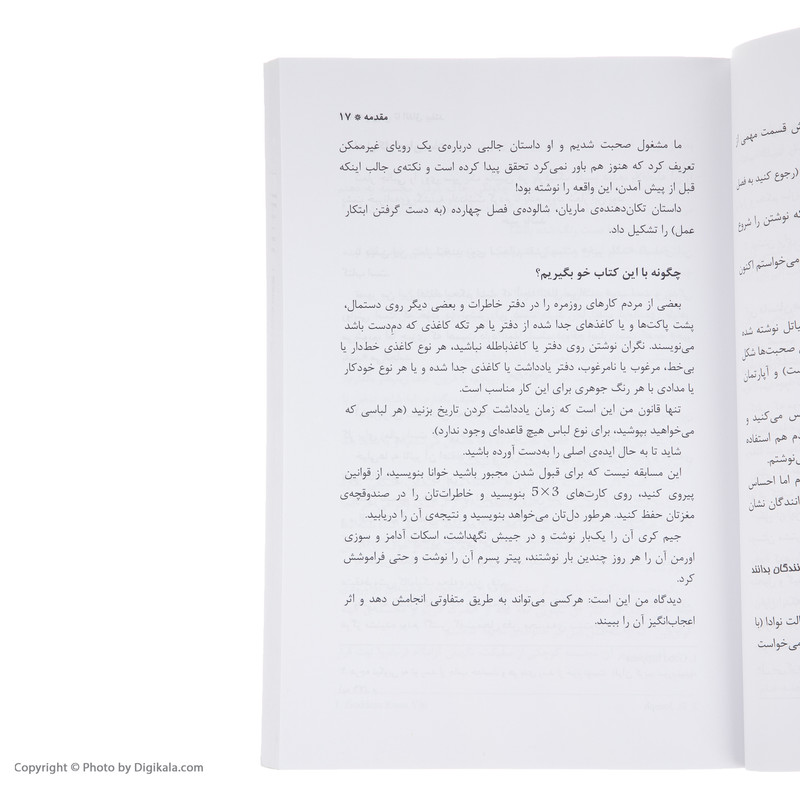 مقدمه * ۱۷
ما مشغول صحبت شدیم و او داستان جالبی درباره‌ی یک رویای غیرممکن
تعریف کرد که هنوز هم باور نمی‌کرد تحقق پیدا کرده است و نکته‌ی جالب اینکه
قبل از پیش آمدن، این واقعه را نوشته بود!
داستان تکان‌دهنده‌ی ماریان، شالوده‌ی فصل چهارده (به دست گرفتن ابتکار
عمل) را تشکیل داد.
چگونه با این کتاب خو بگیریم؟
بعضی از مردم کارهای روزمره را در دفتر خاطرات و بعضی دیگر روی دستمال،
پشت پاکت‌ها و یا کاغذهای جدا شده از دفتر یا هر تکه کاغذی که دم‌ِدست باشد
می‌نویسند. نگران نوشتن روی دفتر یا کاغذباطله نباشید، هر نوع کاغذی خط‌دار یا
بی‌خط، مرغوب یا نامرغوب، دفتر یادداشت یا کاغذی جدا شده و یا هر نوع خودکار
یا مدادی با هر رنگ جوهری برای این کار مناسب است.
تنها قانون من این است که زمان یادداشت کردن تاریخ بزنید (هر لباسی که
می‌خواهید بپوشید، برای نوع لباس هیچ قاعده‌ای وجود ندارد).
شاید تا به حال ایده‌ی اصلی را به‌دست آورده باشید.
این مسابقه نیست که برای قبول شدن مجبور باشید خوانا بنویسید، از قوانین
پیروی کنید، روی کارت‌های 3×5 بنویسید و خاطرات‌تان را در صندوقچه‌ی
مغزتان حفظ کنید. هرطور دل‌تان می‌خواهد بنویسید و نتیجه‌ی آن را دریابید.
جیم کری آن را یک‌بار نوشت و در جیبش نگهداشت، اسکات آدامز و سوزی
اورمن آن را هر روز چندین بار نوشتند، پیتر پسرم آن را نوشت و حتی فراموشش
کرد.
دیدگاه من این است: هرکسی می‌تواند به طریق متفاوتی انجامش دهد و اثر
اعجاب‌انگیز آن را ببیند.
ش قسمت مهمی از
(رجوع کنید به فصل
که نوشتن را شروع
می‌خواستم اکنون
یاتل نوشته شده
صحبت‌ها شکل
ست) و آپارتمان
س می‌کنید و
دم هم استفاده
ی‌نوشتم.
م اما احساس
انندگان نشان
نندگان بدانند
لت نوادا (با
می‌خواست
Copyright © Photo by Digikala.com